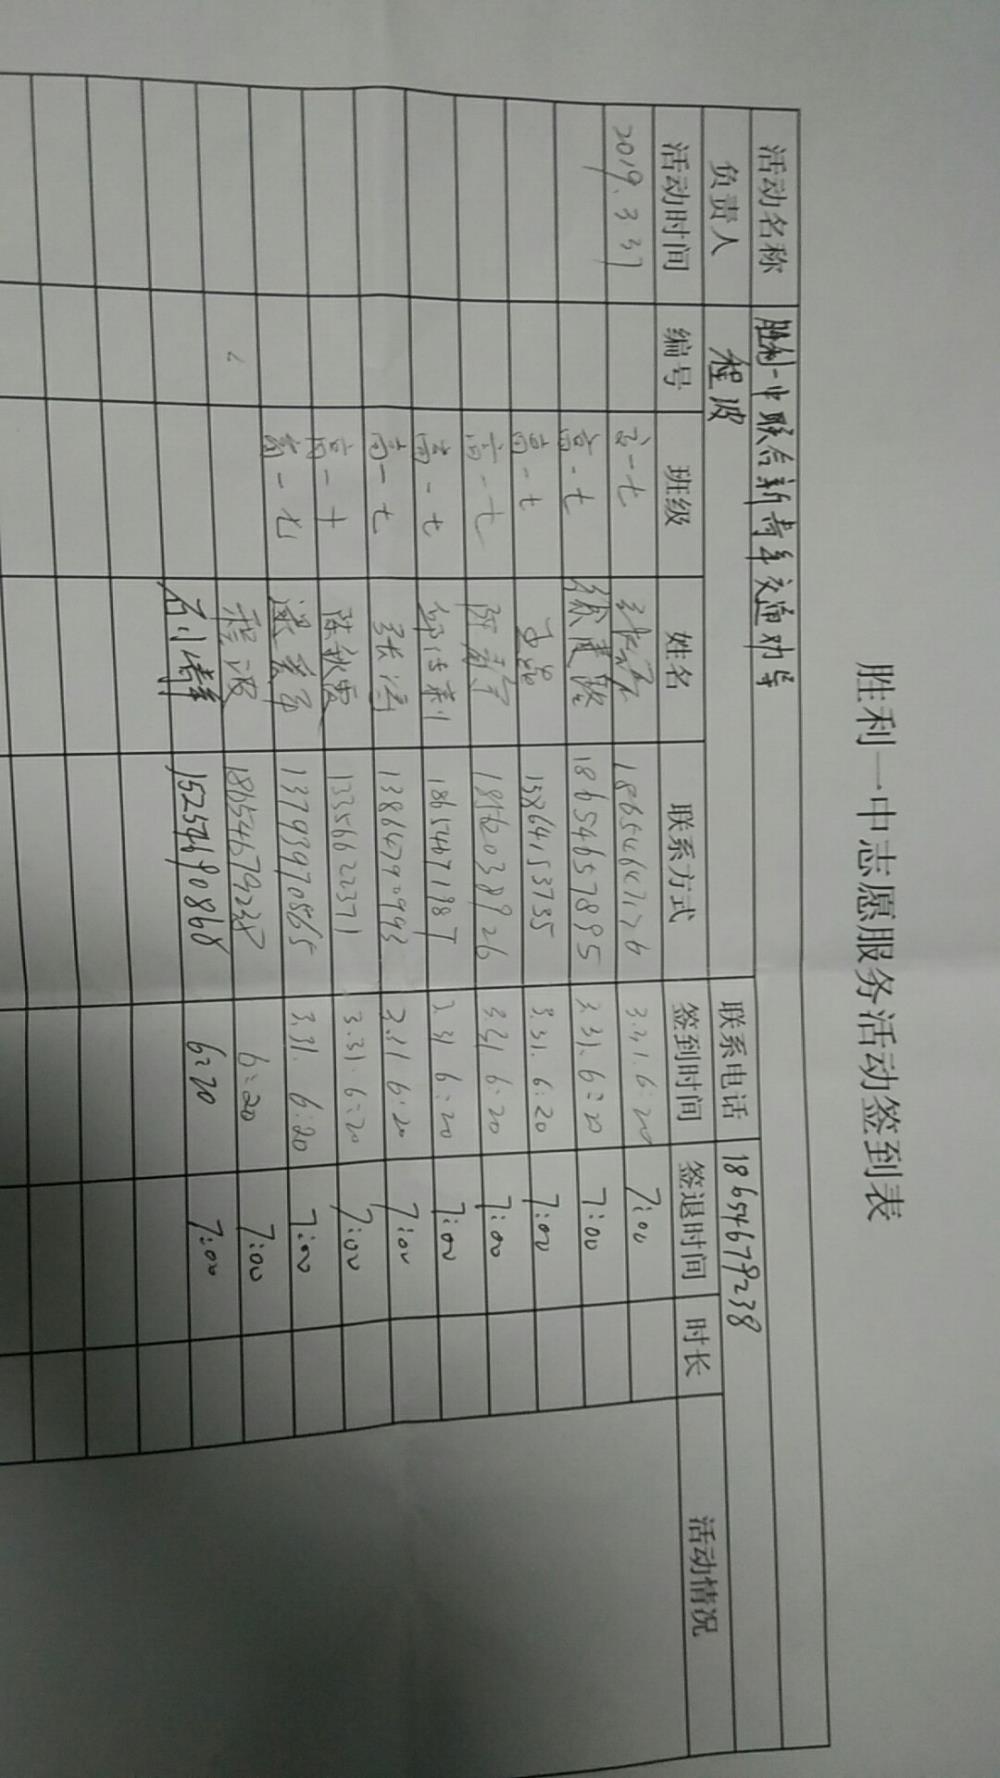 胜利一中志愿服务活动签到表
活动名称 胜利一中联合新青年交通劝导
负责人 程波 联系电话 18654679238
活动时间 编号 班级 姓名 联系方式 签到时间 签退时间 时长 活动情况
2019.3.31 高一七 3.31.6:20 7:00
高一七 18654657895 3.31.6:20 7:00
高一七 15864153735 3.31.6:20 7:00
高一七 18562038926 3.31 6:20 7:00
高一七 18654671187 3.31 6:20 7:00
高一七 张涛 13864790993 3.31 6:20 7:00
高一十 陈秋霞 13356622371 3.31.6:20 7:00
高一七 13793970865 3.31.6:20 7:00
程波 18654679238 6:20 7:00
石小婧 15254680868 6:20 7:00